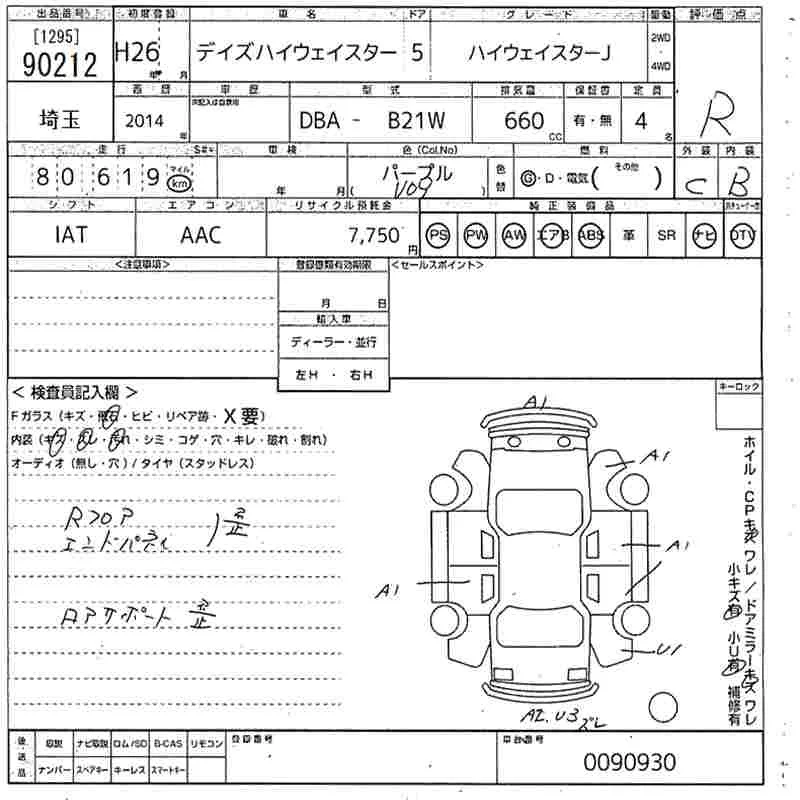 出品番号 初度登録 車名 ドア グレード 駆動 評価点
[1295]
90212 H26 年 月 デイズハイウェイスター 5 ハイウェイスターJ 2WD ・ 4WD R
車歴 型式 排気量 保証書 定員
埼玉 2014 年 DBA - B21W 660 CC 有・無 4 名
走行 車検 色(Col,No) 燃料 外装 内装
80,619 マイル km 年 月 ( パープル V09 ) 色替 G・D・電気( その他 ) C B
シフト エアコン リサイクル預託金 純正装備品
IAT AAC 7,750 円 PS PW AW エアB ABS 革 SR ナビ DTV
<注意事項> 登録書類有効期限 <セールスポイント>
月 日
輸入車
ディーラー・並行
左H ・ 右H
< 検査員記入欄 > キーロック
Fガラス (キズ・飛石・ヒビ・リペア跡・X要)
内装 (キズ・スレ・汚れ・シミ・コゲ・穴・キレ・破れ・割れ)
オーディオ (無し・穴) / タイヤ (スタッドレス)
Rフロア
エンドパネル
コアサポート
A1
A1
A1
A1
U1
A2,U3 ズレ
ホイル・CPキズ ワレ / ドアミラーキズ ワレ
小キズ有 小U有 補修有
後送品 取説 ナビ取説 ロム/SD B-CAS リモコン 登録番号 車台番号
ナンバー スペアキー キーレス スマートキー 0090930